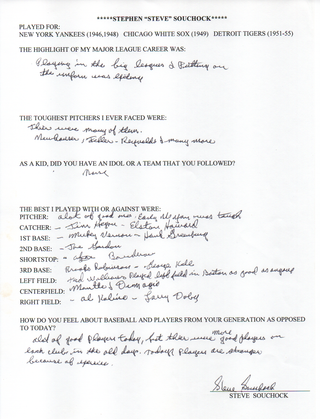 *****STEPHEN "STEVE" SOUCHOCK*****
PLAYED FOR:
NEW YORK YANKEES (1946,1948) CHICAGO WHITE SOX (1949) DETROIT TIGERS (1951-55)
THE HIGHLIGHT OF MY MAJOR LEAGUE CAREER WAS:
Playing in the big leagues & Putting on
the uniform was
THE TOUGHEST PITCHERS I EVER FACED WERE:
There were many of them.
Newhouser, - Reynolds & many more
AS A KID, DID YOU HAVE AN IDOL OR A TEAM THAT YOU FOLLOWED?
None
THE BEST I PLAYED WITH OR AGAINST WERE:
PITCHER: alot of good ones Early Wynn was tough
CATCHER: - Jim Hegan - Elston Howard
1ST BASE: - Mickey Vernon - Hank Greenburg
2ND BASE: - Joe Gordon
SHORTSTOP: - Boudreau
3RD BASE: Brooks Robinson - George Kell
LEFT FIELD: Ted Williams Played left field in Boston as good as anyone
CENTERFIELD: Mantle & Dimagio
RIGHT FIELD: - Al Kaline - Larry Doby
HOW DO YOU FEEL ABOUT BASEBALL AND PLAYERS FROM YOUR GENERATION AS OPPOSED
TO TODAY?
of good players today, but there were more good players on
each club in the old days. Todays players are stronger
because of
Steve Souchock
STEVE SOUCHOCK